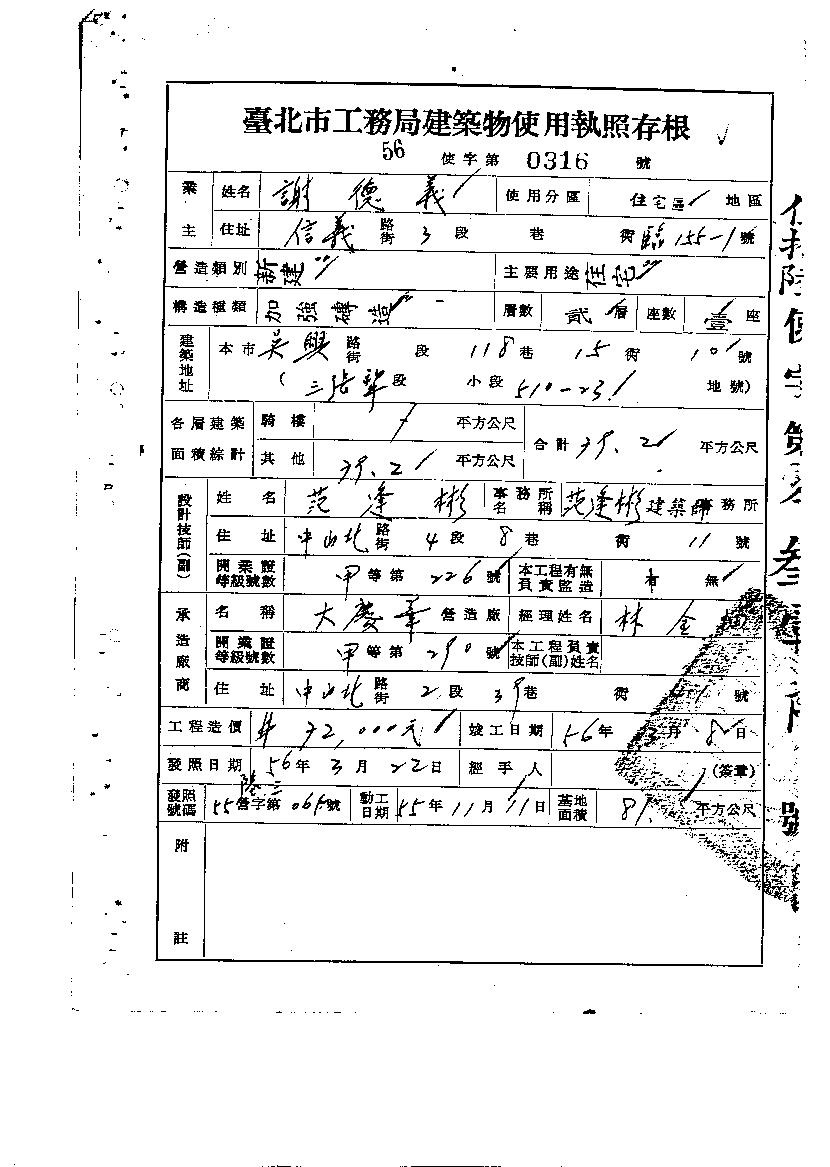 臺北市工務局建築物使用執照存根
56 使字第 0316 號
業主 姓名 謝德義 使用分區 住宅區 地區
住址 信義 路街 3 段 巷 街 臨155-1 號
營造類別 新建 主要用途 住宅
構造種類 加強磚造 層數 貳層 座數 壹座
建築地址 本市 吳興 路街 段 118 巷 15 街 10 號
(三張犂段 小段 510-23 地號)
各層建築面積綜計 騎樓 平方公尺 合計 39.2 平方公尺
其他 39.2 平方公尺
設計技師(副) 姓名 范逢彬 事務所名稱 范逢彬建築師事務所
住址 中山北 路街 4 段 8 巷 街 11 號
開業證等級號數 甲等第 226 號 本工程有無負責監造 有 無
承造廠商 名稱 大慶華 營造廠 經理姓名 林金
開業證等級號數 甲等第 290 號 本工程負責技師(副)姓名
住址 中山北 路街 2 段 39 巷 街 號
工程造價 72,000元 竣工日期 56年 3月 8日
發照日期 56年 3月 22日 經手人 (簽章)
發照號碼 55營字第 號 動工日期 55年 11月 11日 基地面積 81. 平方公尺
附註
號